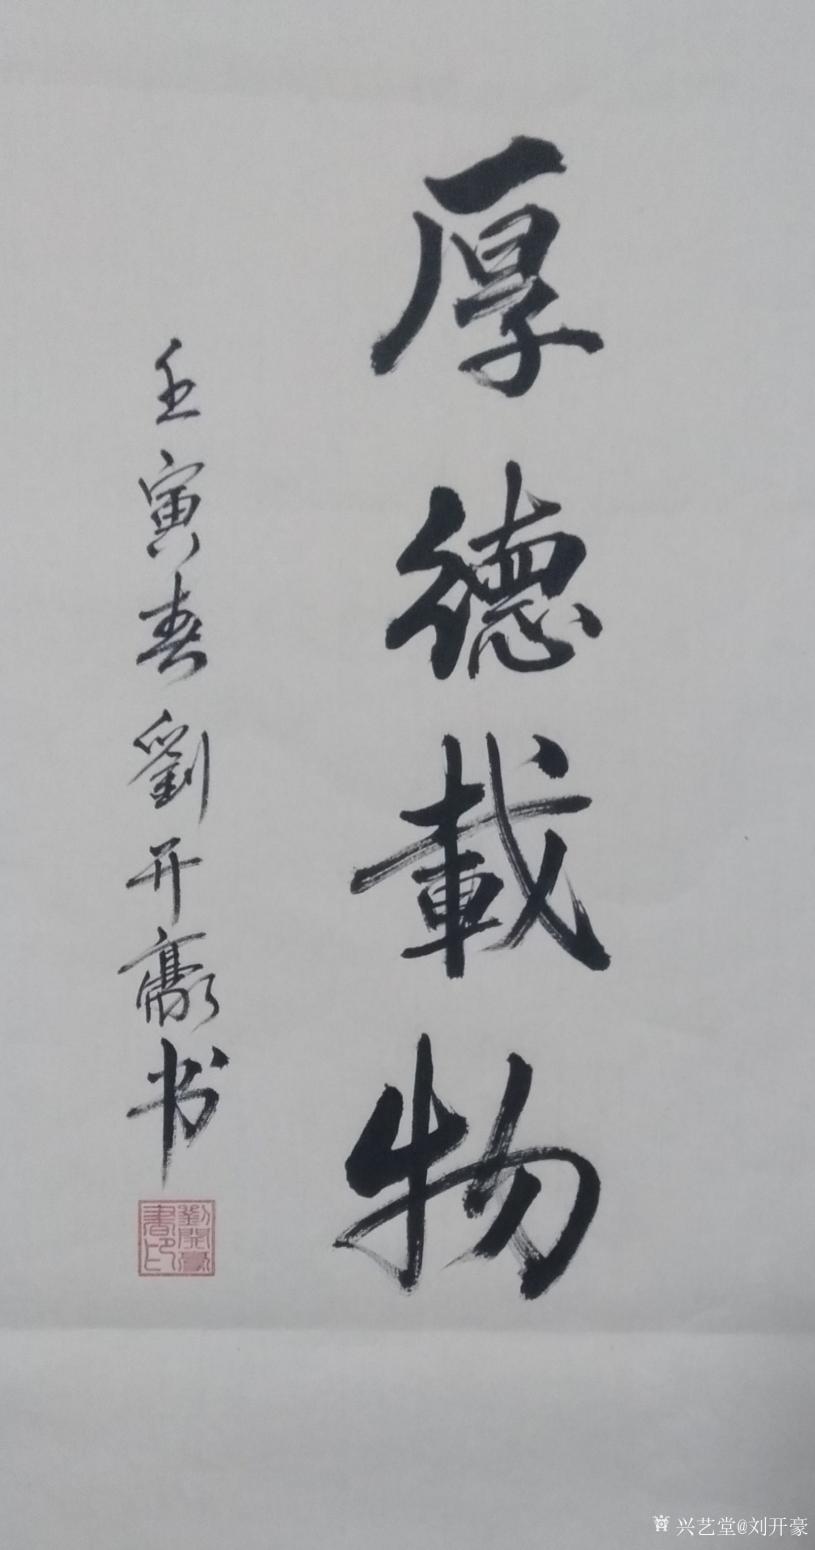 厚德載物
壬寅春劉开豪书
劉開豪書印
兴艺堂@刘开豪